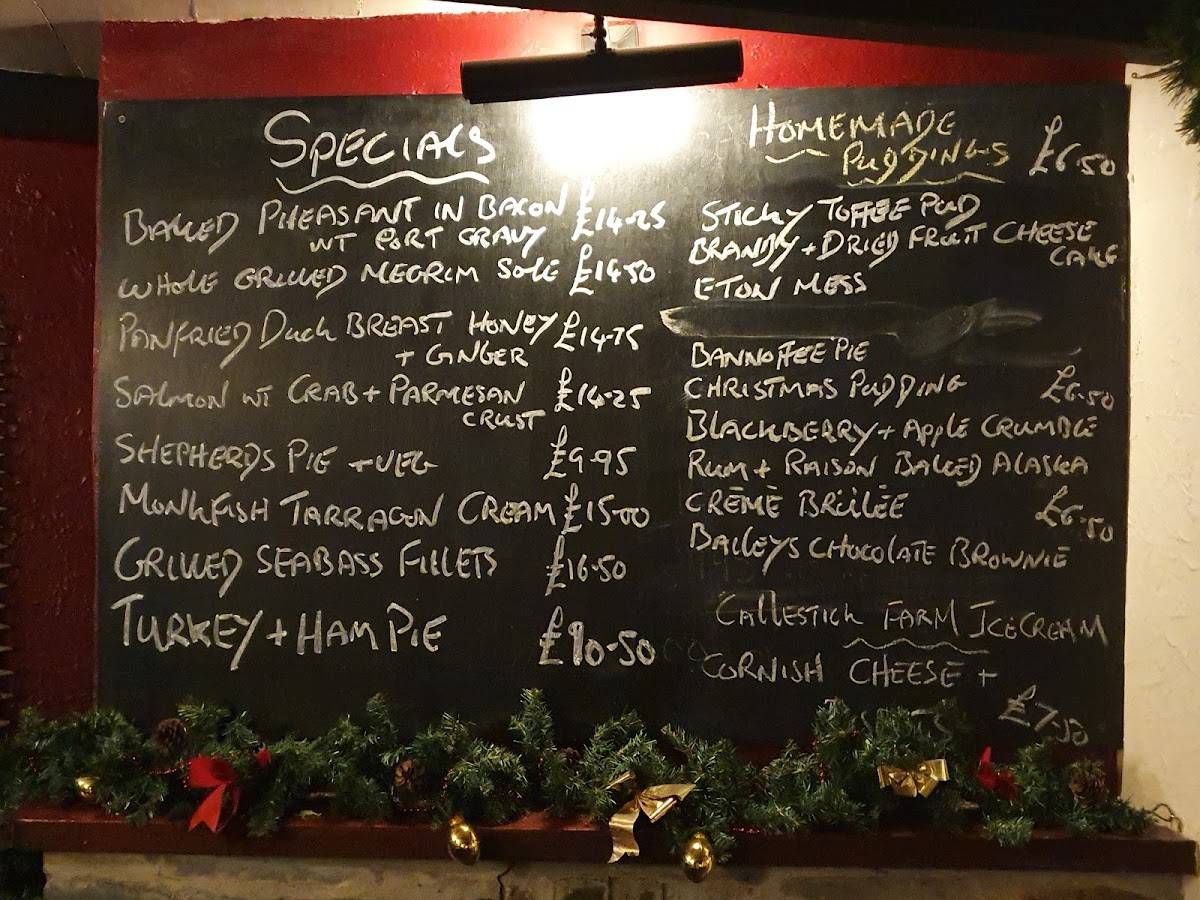 SPECIALS
BAKED PHEASANT IN BACON £14-25
WT PORT GRAVY
WHOLE GRILLED MEGRIM SOLE £14.50
PANFRIED Duck BREAST HONEY £14-75
+ GINGER
SALMON WT CRAB + PARMESAN £14-25
CRUST
SHEPHERDS PIE + VEG £9-95
MONKFISH TARRAGON CREAM £15-00
GRILLED SEABASS FILLETS £16-50
TURKEY + HAM PIE £10-50
HOMEMADE
PUDDINGS £6.50
STICKY TOFFEE PUD
BRANDY + DRIED FRUIT CHEESE
CAKE
ETON MESS
BANNOFFEE PIE
CHRISTMAS PUDDING £6.50
BLACKBERRY + APPLE CRUMBLE
RUM + RAISON BAKED ALASKA
CRÈME BRÛLÉE £6.50
BAILEYS CHOCOLATE BROWNIE
CALLESTICK FARM ICECREAM
CORNISH CHEESE +
£7-50